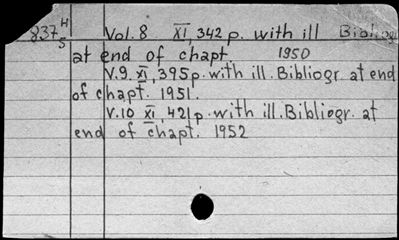 837 H Vol. 8 XI, 342 p. with ill Bibliogr
5
at end of chapt 1950
V.9. XI, 395p. with ill. Bibliogr. at end
of chapt. 1951.
V.10 XI, 421p. with ill. Bibliogr. at
end of chapt. 1952